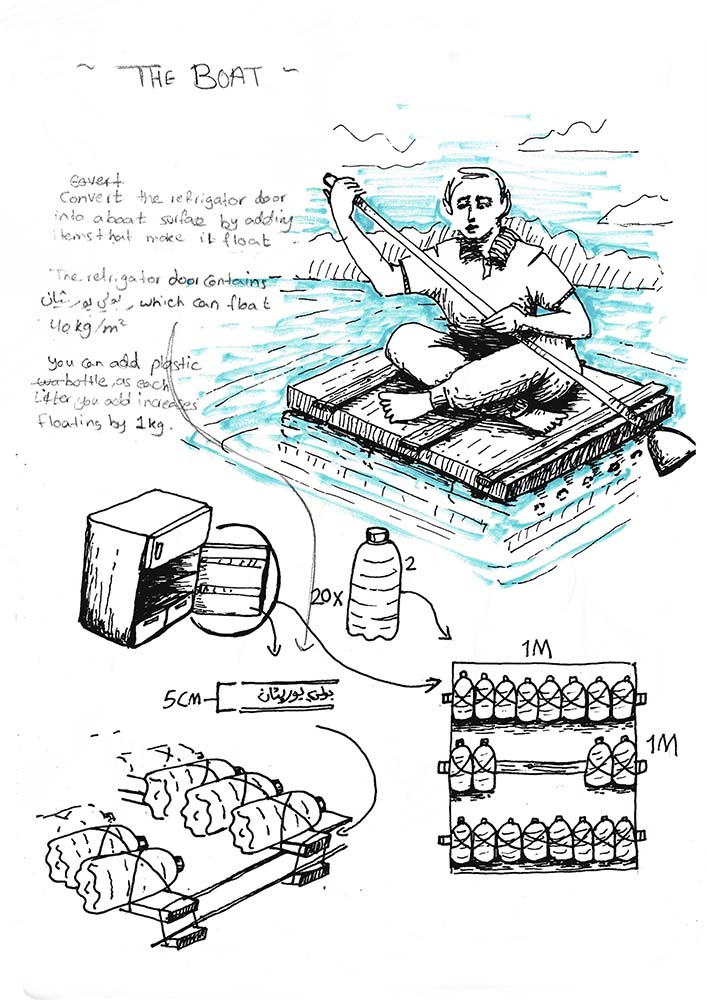 ~ THE BOAT ~
Covert
Convert the refrigator door
into a boat surfaz by adding
items that make it float
The refrigator door contains
بولي يوريثان, which can float
40 kg/m²
You can add plastic
bottle, as each
Litter you add increases
Floatins by 1 kg.
20x
2
1M
5CM
بولي يوريثان
1M